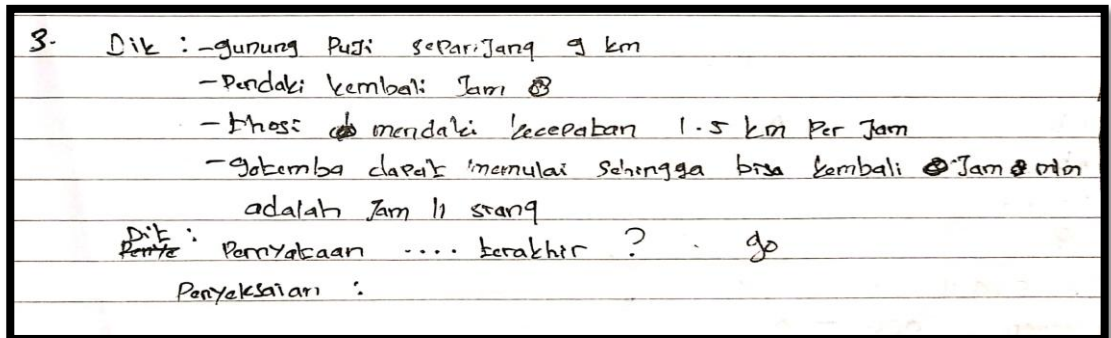 3. Dik : - gunung Puji sepanjang 9 km
- Pendaki kembali Jam 8
- thosi mendaki kecepatan 1.5 km Per Jam
- gotemba dapat memulai sehingga bisa kembali Jam
adalah Jam 11 srang
Dit : Pernyataan .... terakhir ? go
Penyeksaian :